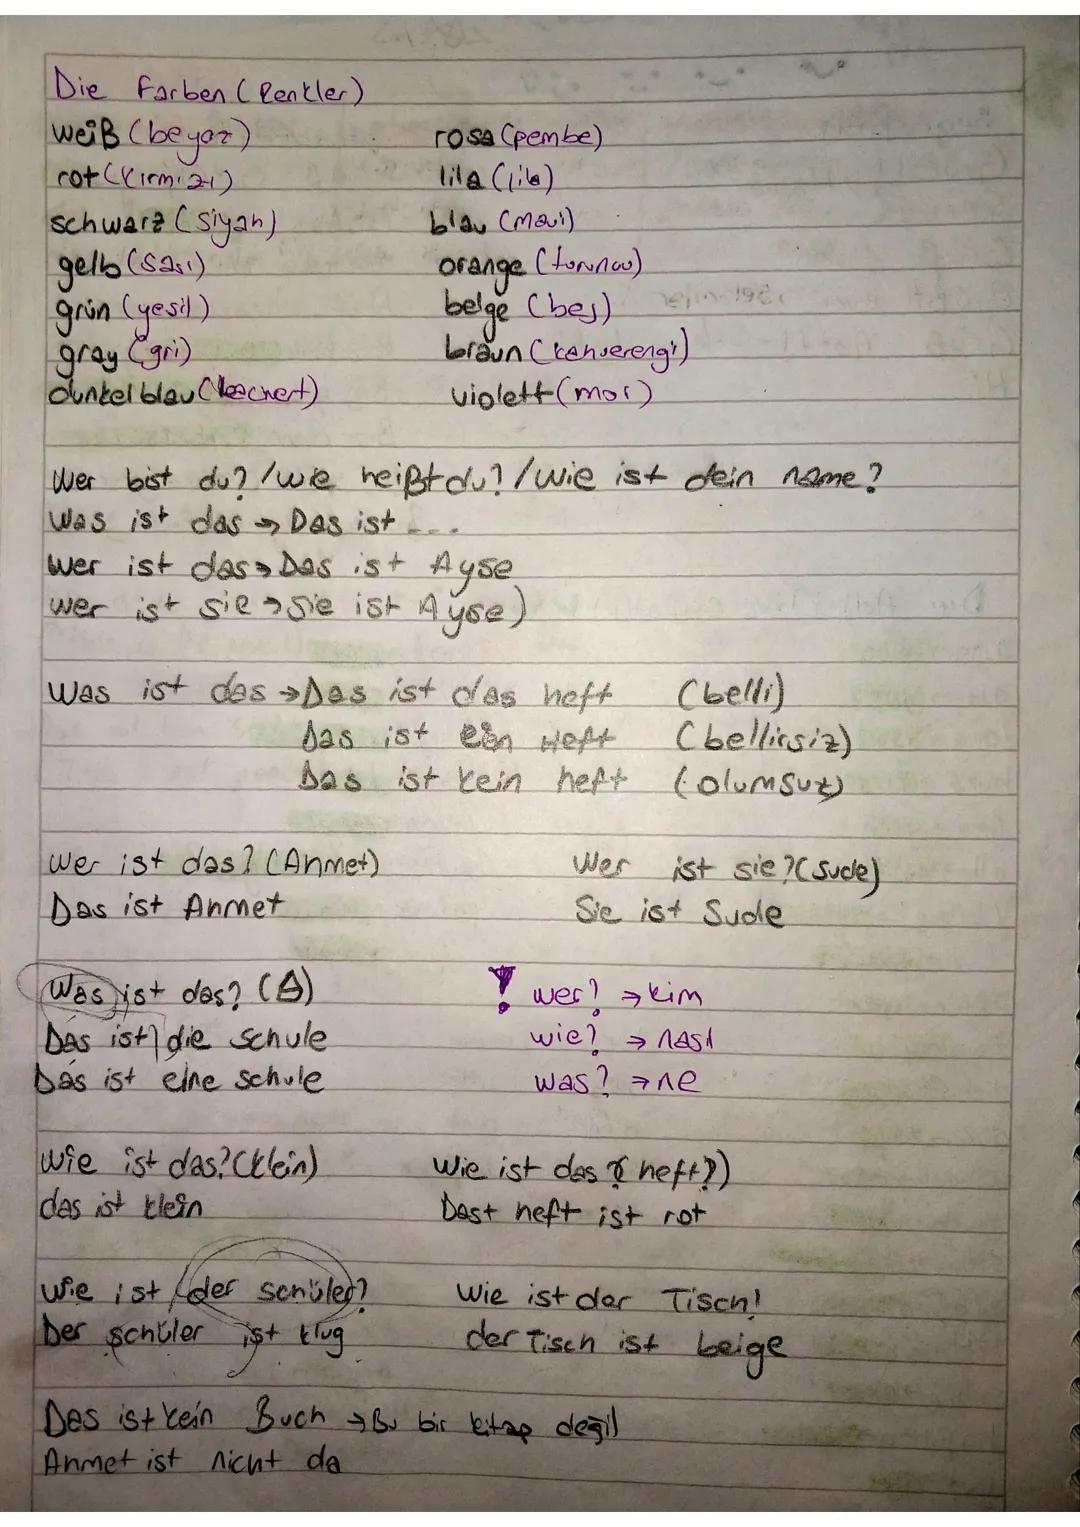 Die Farben (Renkler)
weiß (beyaz)
rot (kırmızı)
schwarz (siyah)
gelb (sarı)
grün (yesil)
gray (gri)
dunkel blau (lacivert)
rosa (pembe)
lila (lila)
blau (mavi)
orange (turuncu)
beige (bej)
braun (kahverengi)
violett (mor)
Wer bist du? / wie heißt du? / Wie ist dein name?
Was ist das → Das ist ...
Wer ist das → Das ist Ayse
Wer ist sie → Sie ist Ayse)
Was ist das → Das ist das heft (belli)
Das ist ein Heft (bellirsiz)
Das ist kein heft (olumsuz)
Wer ist das? (Ahmet)
Das ist Ahmet
Wer ist sie? (Sude)
Sie ist Sude
Was ist das? ( )
Das ist die schule
Das ist eine schule
! wer? → kim
wie? → nasıl
was? → ne
Wie ist das? (klein)
das ist klein
Wie ist das heft?)
Dast heft ist rot
Wie ist der schüler?
Der schüler ist klug
Wie ist der Tisch!
der Tisch ist beige
Das ist kein Buch → Bu bir kitap değil
Ahmet ist nicht da